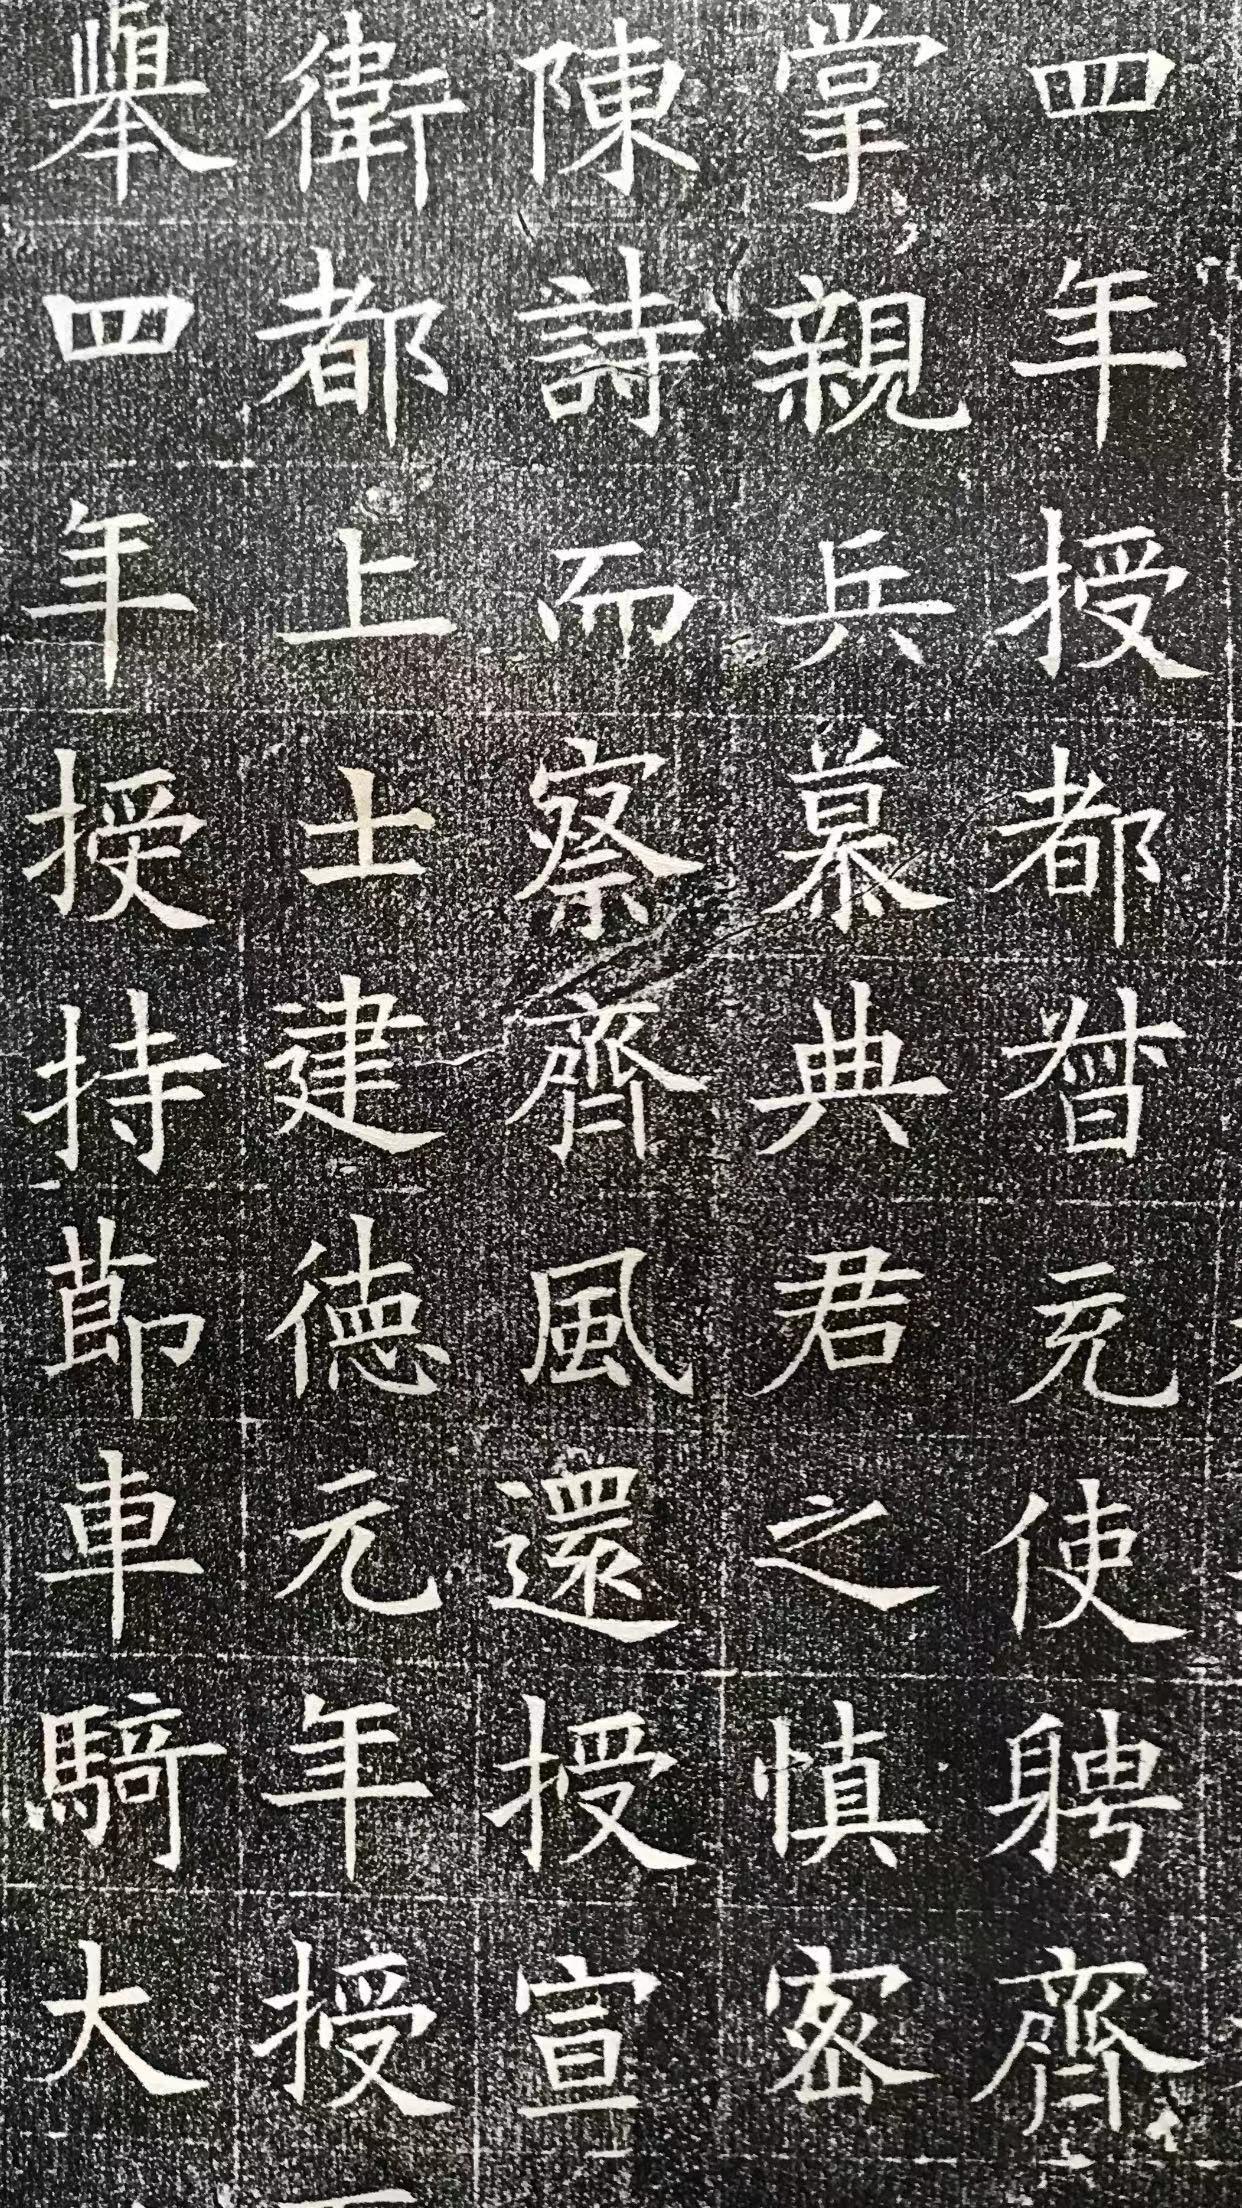 四年授都督充使聘齊
掌親兵慕典君之慎密
陳詩而察齊風還授宣
衛都上士建德元年授
舉四年授持節車騎大